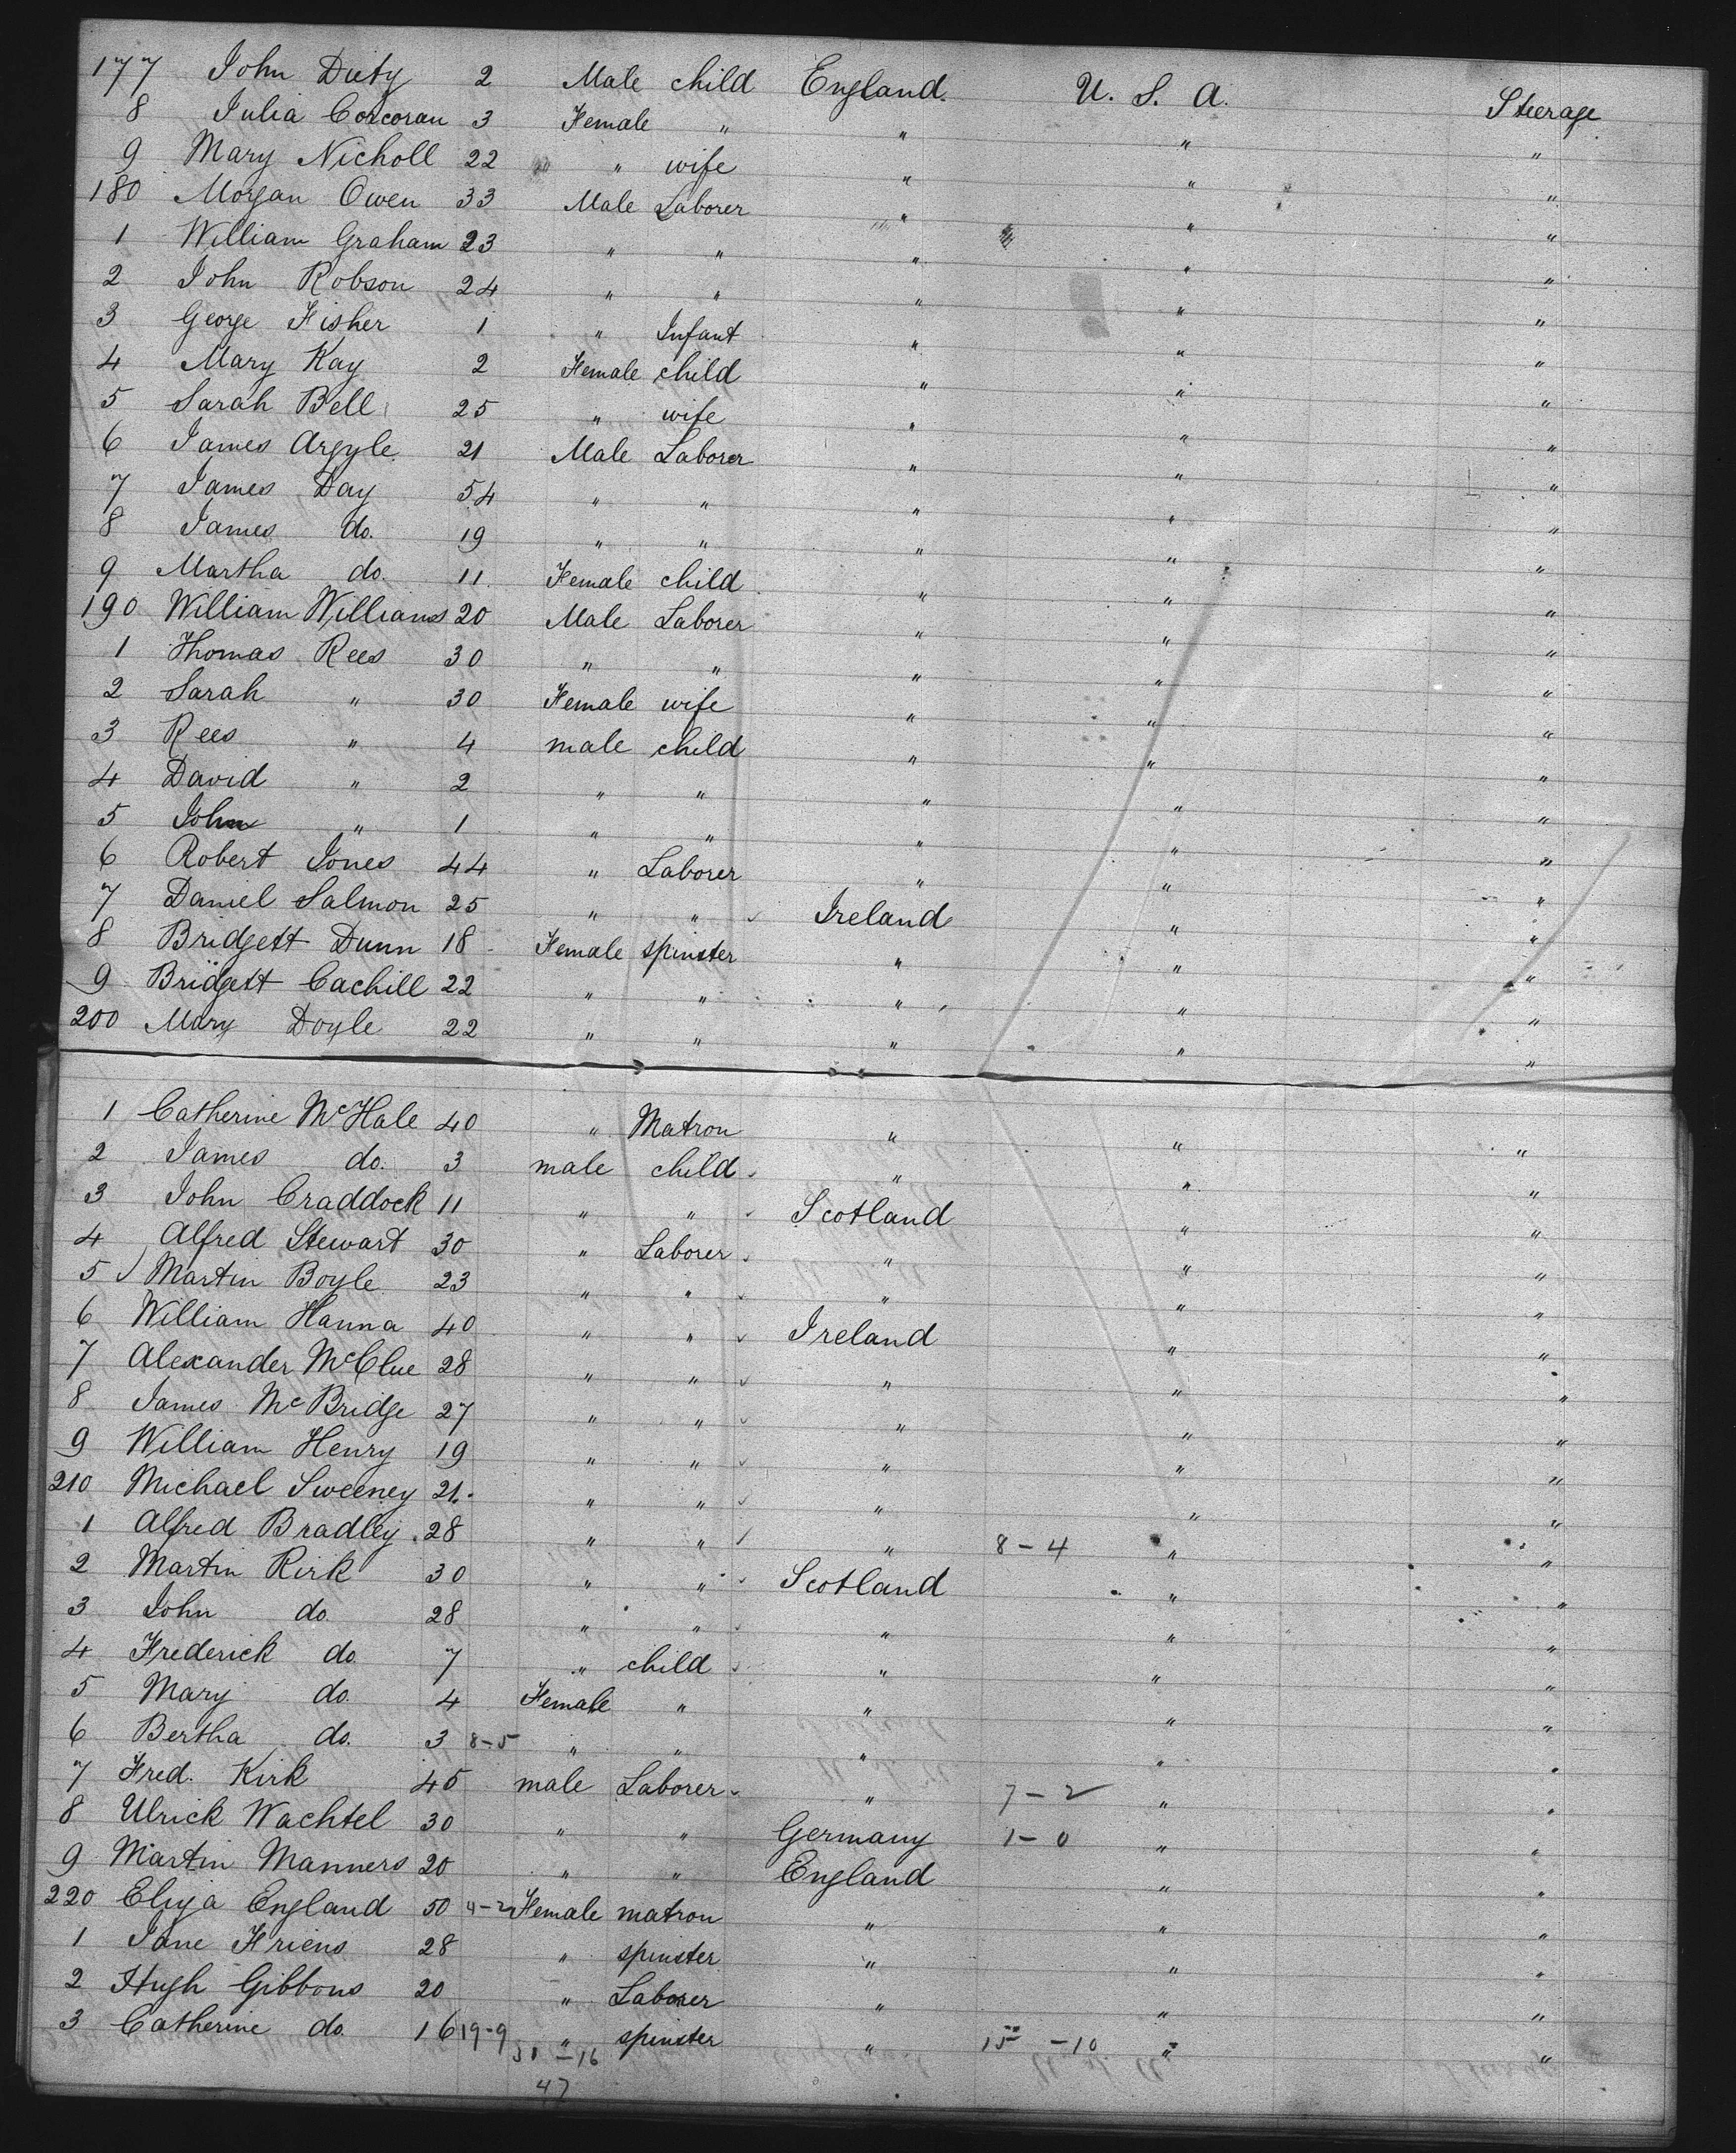 177 John Duty 2 Male child England. U. S. A. Steerage
8 Julia Corcoran 3 Female " " " "
9 Mary Nicholl 22 " wife " " "
180 Morgan Owen 33 Male Laborer " " "
1 William Graham 23 " " " " "
2 John Robson 24 " " " " "
3 George Fisher 1 " Infant " " "
4 Mary Kay 2 Female child " " "
5 Sarah Bell 25 " wife " " "
6 James Argyle 21 Male Laborer " " "
7 James Day 54 " " " " "
8 James do. 19 " " " " "
9 Martha do. 11 Female child " " "
190 William Williams 20 Male Laborer " " "
1 Thomas Rees 30 " " " " "
2 Sarah " 30 Female wife " " "
3 Rees " 4 male child " " "
4 David " 2 " " " " "
5 John " 1 " " " " "
6 Robert Jones 44 " Laborer " " "
7 Daniel Salmon 25 " " Ireland " "
8 Bridgett Dunn 18 Female spinster " " "
9 Bridgett Cachill 22 " " " " "
200 Mary Doyle 22 " " " " "
1 Catherine McHale 40 " Matron " " "
2 James do. 3 male child " " "
3 John Craddock 11 " " Scotland " "
4 Alfred Stewart 30 " Laborer " " "
5 Martin Boyle 23 " " " " "
6 William Hanna 40 " " Ireland " "
7 Alexander McClue 28 " " " " "
8 James McBridge 27 " " " " "
9 William Henry 19 " " " " "
210 Michael Sweeney 21. " " " " "
1 Alfred Bradley 28 " " " 8-4 " "
2 Martin Kirk 30 " " Scotland " "
3 John do. 28 " " " " "
4 Frederick do. 7 " child " " "
5 Mary do. 4 Female " " " "
6 Bertha do. 3 8-5 " " " " "
7 Fred. Kirk 45 male Laborer " 7-2 " "
8 Ulrick Wachtel 30 " " Germany 1-0 " "
9 Martin Manners 20 " " England " "
220 Eliza England 50 4-2 Female matron " " "
1 Jane Friens 28 " spinster " " "
2 Hugh Gibbons 20 " Laborer " " "
3 Catherine do. 16 19-9 " spinster " 15-10 " "
31-16
47